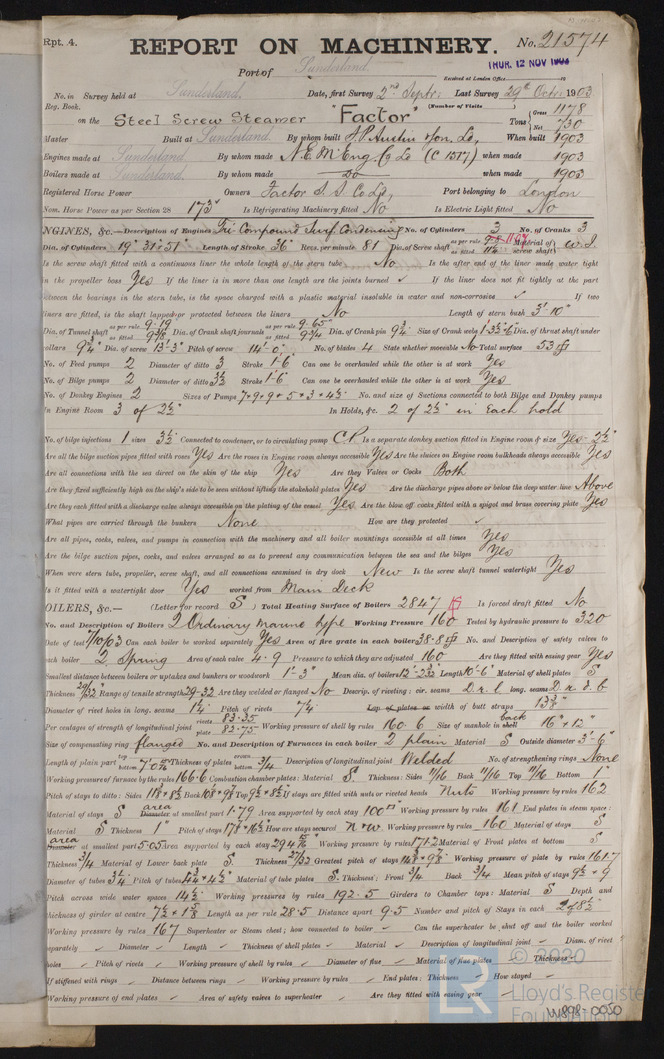 Rpt. 4. REPORT ON MACHINERY. No. 21574
Port of Sunderland THUR. 12 NOV 1903
Received at London Office 19
No. in Survey held at Sunderland Date, first Survey 2nd Septr: Last Survey 29th Octr: 1903
Reg. Book. (Number of Visits )
on the Steel Screw Steamer "Factor" Tons Gross 1178 Net 730
Master Built at Sunderland By whom built J. P. Austin & Son. Ld, When built 1903
Engines made at Sunderland By whom made N.E. M. Eng. Co Ld (C 1517) when made 1903
Boilers made at Sunderland By whom made Do when made 1903
Registered Horse Power Owners Factor S. S. Co Ld, Port belonging to London
Nom. Horse Power as per Section 28 173 Is Refrigerating Machinery fitted No Is Electric Light fitted No
NGINES, &c.—Description of Engines Tri Compound Surf. Condensing No. of Cylinders 3 No. of Cranks 3
Dia. of Cylinders 19" 31" & 51" Length of Stroke 36" Revs. per minute 81 Dia. of Screw shaft as per rule as fitted Material of screw shaft W. I.
Is the screw shaft fitted with a continuous liner the whole length of the stern tube No Is the after end of the liner made water tight
in the propeller boss Yes If the liner is in more than one length are the joints burned ✓ If the liner does not fit tightly at the part
between the bearings in the stern tube, is the space charged with a plastic material insoluble in water and non-corrosive ✓ If two
liners are fitted, is the shaft lapped or protected between the liners No Length of stern bush 3'-10"
Dia. of Tunnel shaft as per rule 9.19 as fitted 9 3/8 Dia. of Crank shaft journals as per rule 9.65 as fitted 9 3/4 Dia. of Crank pin 9 3/4 Size of Crank webs Dia. of thrust shaft under
collars 9 3/4" Dia. of screw 13'-3" Pitch of screw 14'-0" No. of blades 4 State whether moveable No Total surface 53 ft
No. of Feed pumps 2 Diameter of ditto 3 Stroke 1'-6" Can one be overhauled while the other is at work Yes
No. of Bilge pumps 2 Diameter of ditto 3 1/2 Stroke 1'-6" Can one be overhauled while the other is at work Yes
No. of Donkey Engines 2 Sizes of Pumps 7 + 9 + 9 & 5 + 3 + 4 1/2" No. and size of Suctions connected to both Bilge and Donkey pumps
In Engine Room 3 of 2 1/2" In Holds, &c. 2 of 2 1/2" in Each hold
No. of bilge injections 1 sizes 3 1/2 Connected to condenser, or to circulating pump C.P. Is a separate donkey suction fitted in Engine room & size Yes - 2 1/2"
Are all the bilge suction pipes fitted with roses Yes Are the roses in Engine room always accessible Yes Are the sluices on Engine room bulkheads always accessible Yes
Are all connections with the sea direct on the skin of the ship Yes Are they Valves or Cocks Both
Are they fixed sufficiently high on the ship's side to be seen without lifting the stokehold plates Yes Are the discharge pipes above or below the deep water line Above
Are they each fitted with a discharge valve always accessible on the plating of the vessel Yes Are the blow off cocks fitted with a spigot and brass covering plate Yes
What pipes are carried through the bunkers None How are they protected ✓
Are all pipes, cocks, valves, and pumps in connection with the machinery and all boiler mountings accessible at all times Yes
Are the bilge suction pipes, cocks, and valves arranged so as to prevent any communication between the sea and the bilges Yes
When were stern tube, propeller, screw shaft, and all connections examined in dry dock New Is the screw shaft tunnel watertight Yes
Is it fitted with a watertight door Yes worked from Main Deck
OILERS, &c.— (Letter for record S) Total Heating Surface of Boilers 2847 Is forced draft fitted No
No. and Description of Boilers 2 Ordinary marine type Working Pressure 160 Tested by hydraulic pressure to 320
Date of test 7/10/03 Can each boiler be worked separately Yes Area of fire grate in each boiler 38.8 ft No. and Description of safety valves to
each boiler 2 Spring Area of each valve 4.9 Pressure to which they are adjusted 160 Are they fitted with easing gear Yes
Smallest distance between boilers or uptakes and bunkers or woodwork 1'-3" Mean dia. of boilers Length 10'-6" Material of shell plates S
Thickness 29/32" Range of tensile strength 29-32 Are they welded or flanged No Descrip. of riveting: cir. seams D.r.l. long. seams D.r.d.b
Diameter of rivet holes in long. seams 1 1/4" Pitch of rivets 7 3/4 Lap of plates or width of butt straps 13 3/8"
Per centages of strength of longitudinal joint rivets 83.35 plate 82.75 Working pressure of shell by rules 160.6 Size of manhole in back 16" + 12"
Size of compensating ring flanged No. and Description of Furnaces in each boiler 2 plain Material S Outside diameter 3'-6"
Length of plain part top bottom Thickness of plates crown bottom 3/4 Description of longitudinal joint Welded No. of strengthening rings None
Working pressure of furnace by the rules 166.6 Combustion chamber plates: Material S. Thickness: Sides 11/16 Back 11/16 Top 11/16 Bottom 1"
Pitch of stays to ditto: Sides Back Top If stays are fitted with nuts or riveted heads Nuts Working pressure by rules 162
Material of stays S area Diameter at smallest part 1.79 Area supported by each stay 100 Working pressure by rules 161 End plates in steam space:
Material S Thickness 1" Pitch of stays How are stays secured N & W. Working pressure by rules 160 Material of stays S
area Diameter at smallest part 5.05 Area supported by each stay Working pressure by rules 171.2 Material of Front plates at bottom S
Thickness 3/4 Material of Lower back plate S. Thickness 27/32 Greatest pitch of stays Working pressure of plate by rules 161.7
Diameter of tubes 3 1/4 Pitch of tubes Material of tube plates S. Thickness: Front 3/4 Back 3/4 Mean pitch of stays 9 1/2 + 9
Pitch across wide water spaces 14 1/2 Working pressures by rules 192.5 Girders to Chamber tops: Material S Depth and
thickness of girder at centre Length as per rule 28.5 Distance apart 9.5 Number and pitch of Stays in each 2 @ 8 1/2"
Working pressure by rules 167 Superheater or Steam chest; how connected to boiler ✓ Can the superheater be shut off and the boiler worked
separately ✓ Diameter ✓ Length ✓ Thickness of shell plates ✓ Material ✓ Description of longitudinal joint ✓ Diam. of rivet
holes ✓ Pitch of rivets ✓ Working pressure of shell by rules ✓ Diameter of flue ✓ Material of flue plates ✓ Thickness ✓
If stiffened with rings ✓ Distance between rings ✓ Working pressure by rules ✓ End plates: Thickness ✓ How stayed ✓
Working pressure of end plates ✓ Area of safety valves to superheater ✓ Are they fitted with easing gear ✓
© 2020
LR Lloyd's Register
Foundation
W898-0050